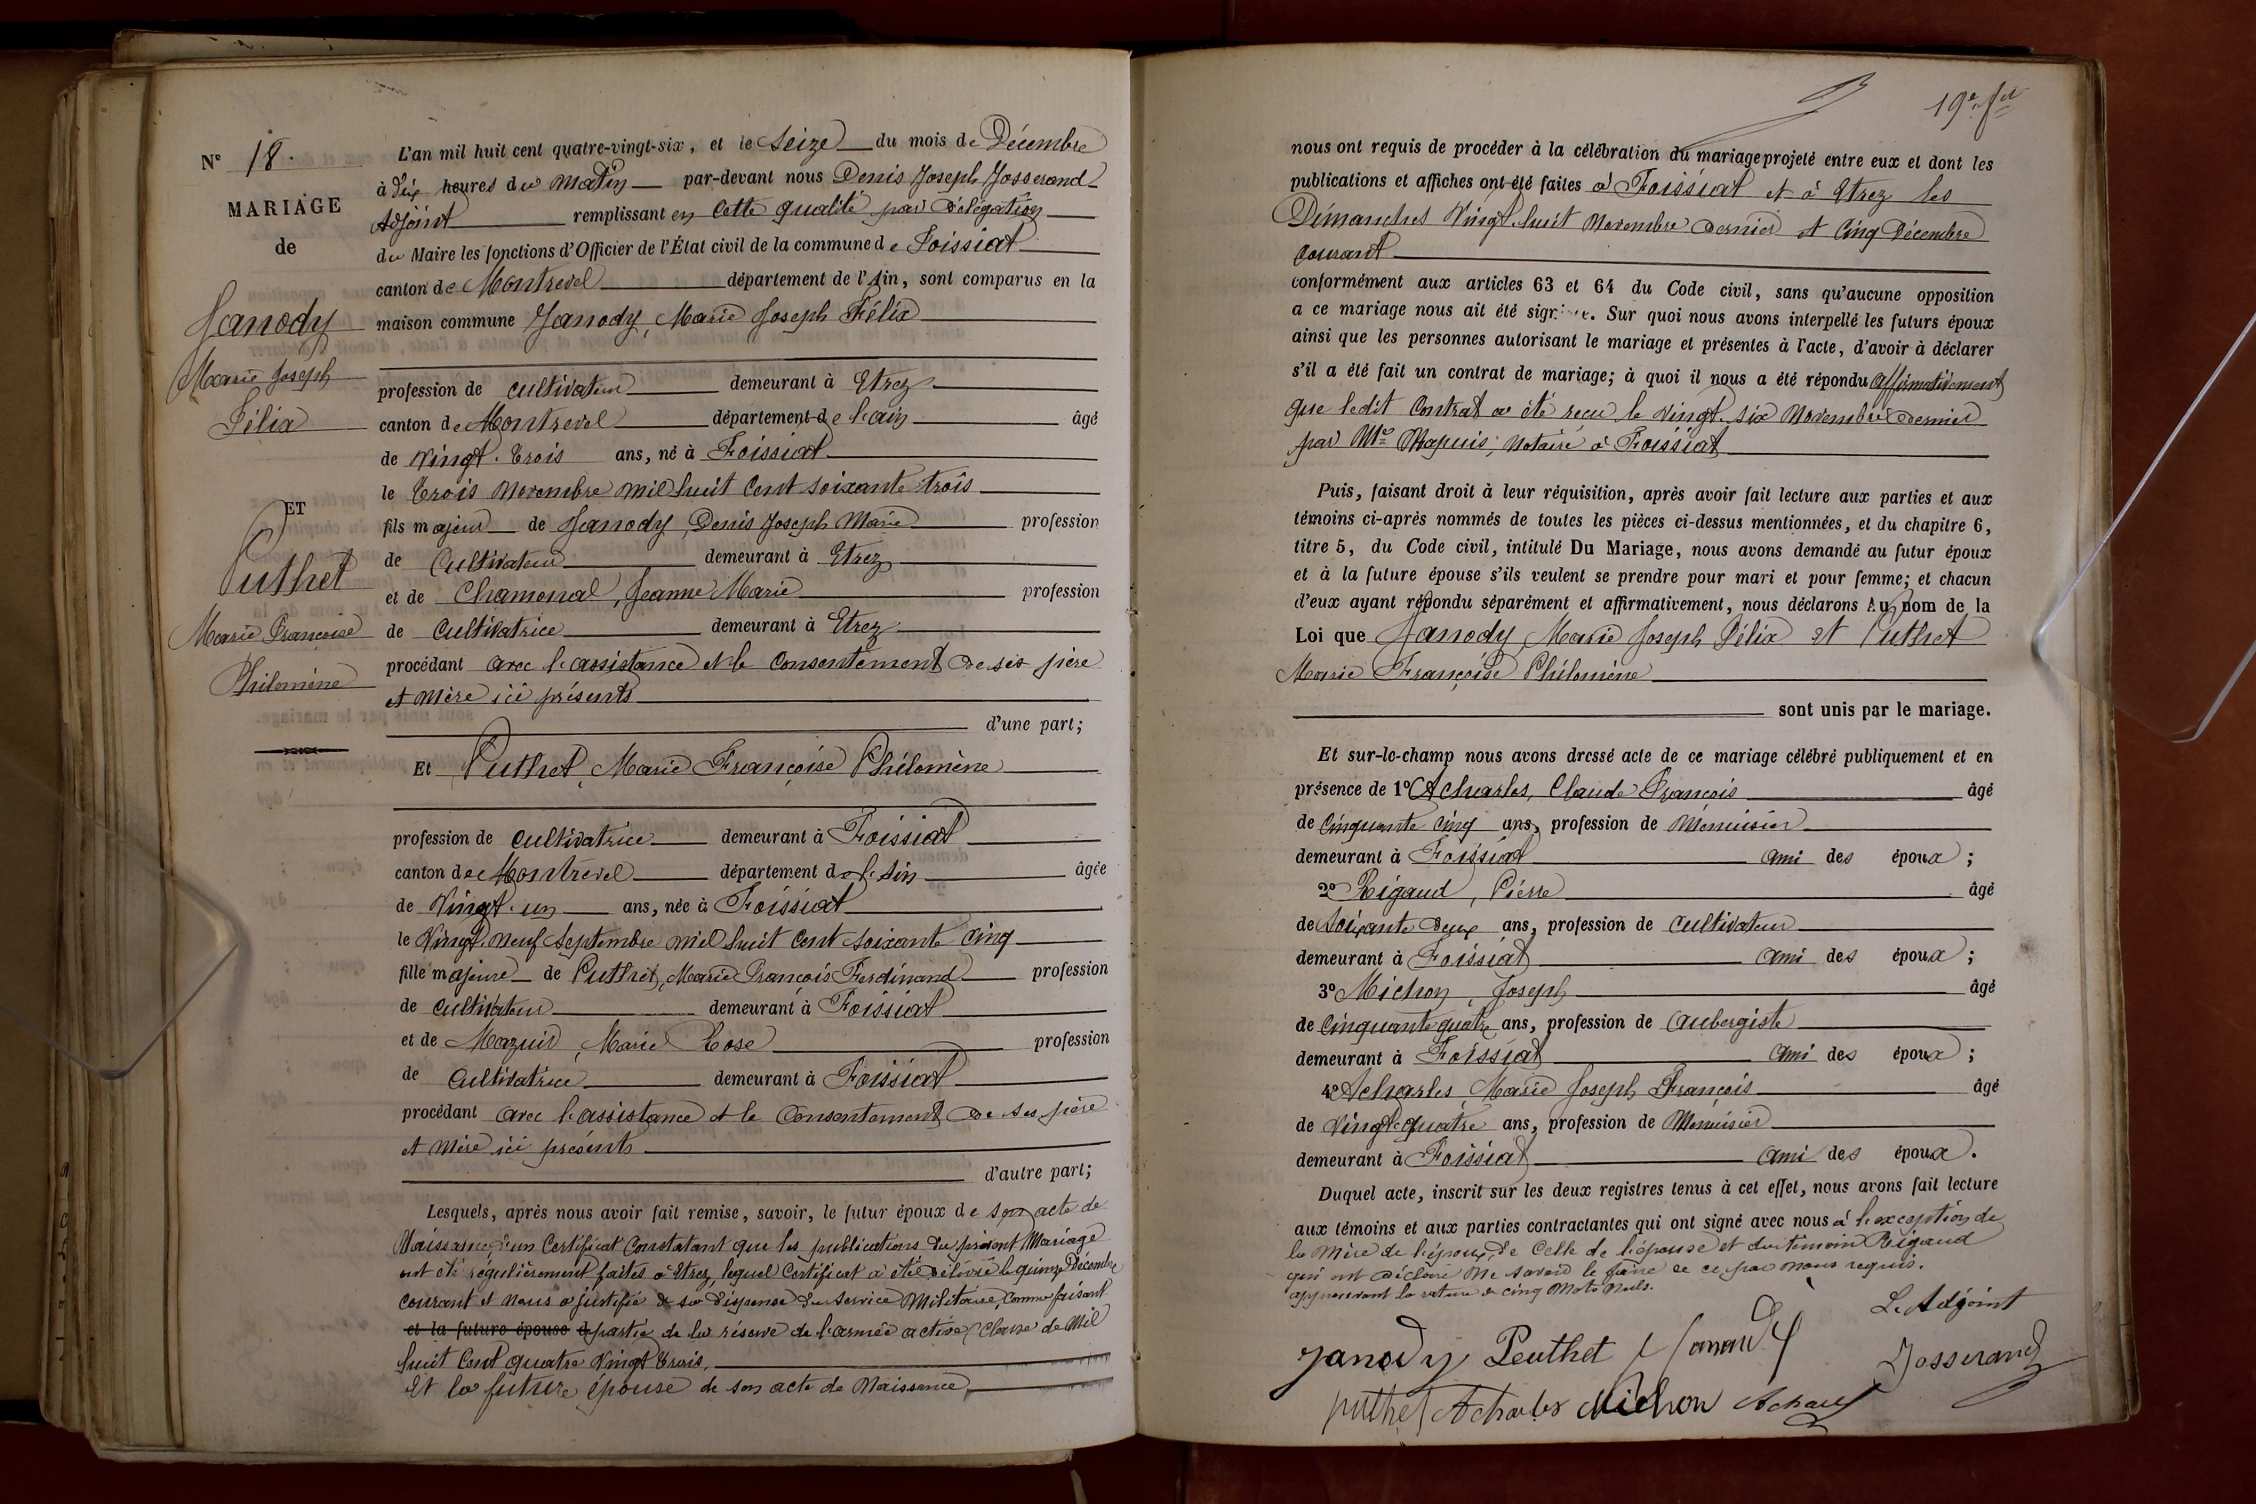 N° 18.
MARIAGE
de
Janody
Marie Joseph
Félix
ET
Puthet
Marie Françoise
Philomène
L'an mil huit cent quatre-vingt-six, et le Seize du mois de Décembre
à dix heures du matin par-devant nous Denis Joseph Josserand
Adjoint remplissant en cette qualité par délégation
du Maire les fonctions d'Officier de l'État civil de la commune de Foissiat
canton de Montrevel département de l'Ain, sont comparus en la
maison commune Janody, Marie Joseph Félix
profession de cultivateur demeurant à Etrez
canton de Montrevel département de l'ain âgé
de vingt-trois ans, né à Foissiat
le trois novembre mil huit cent soixante-trois
fils majeur de Janody, Denis Joseph Marie profession
de Cultivateur demeurant à Etrez
et de Chamonal, Jeanne Marie profession
de cultivatrice demeurant à Etrez
procédant avec l'assistance et le consentement de ses père
et mère ici présents
d'une part;
Et Puthet, Marie Françoise Philomène
profession de cultivatrice demeurant à Foissiat
canton de Montrevel département de l'Ain âgée
de Vingt-un ans, née à Foissiat
le Vingt-neuf Septembre mil huit cent soixante cinq
fille majeure de Puthet, Marie François Ferdinand profession
de cultivateur demeurant à Foissiat
et de Mazuir, Marie Rose profession
de Cultivatrice demeurant à Foissiat
procédant avec l'assistance et le consentement de ses père
et mère ici présents
d'autre part;
Lesquels, après nous avoir fait remise, savoir, le futur époux de son acte de
Naissance, d'un Certificat Constatant que les publications du présent Mariage
ont été régulièrement faites à Etrez, lequel Certificat a été délivré le quinze Décembre
courant et nous a justifié de sa dispense du service Militaire, comme faisant
et la future épouse d partie de la réserve de l'armée active, classe de Mil
huit Cent quatre Vingt trois.
Et la future épouse de son acte de Naissance,
19e fet
nous ont requis de procéder à la célébration du mariage projeté entre eux et dont les
publications et affiches ont été faites à Foissiat et à Etrez les
Dimanches Vingt-huit novembre dernier et cinq Décembre
courant
conformément aux articles 63 et 64 du Code civil, sans qu'aucune opposition
a ce mariage nous ait été signifiée. Sur quoi nous avons interpellé les futurs époux
ainsi que les personnes autorisant le mariage et présentes à l'acte, d'avoir à déclarer
s'il a été fait un contrat de mariage; à quoi il nous a été répondu affirmativement
que ledit contrat a été reçu le vingt-six novembre dernier
par Me notaire à Foissiat
Puis, faisant droit à leur réquisition, après avoir fait lecture aux parties et aux
témoins ci-après nommés de toutes les pièces ci-dessus mentionnées, et du chapitre 6,
titre 5, du Code civil, intitulé Du Mariage, nous avons demandé au futur époux
et à la future épouse s'ils veulent se prendre pour mari et pour femme; et chacun
d'eux ayant répondu séparément et affirmativement, nous déclarons Au nom de la
Loi que Janody Marie Joseph Félix et Puthet
Marie Françoise Philomène
sont unis par le mariage.
Et sur-le-champ nous avons dressé acte de ce mariage célébré publiquement et en
présence de 1° Acharles, Claude François âgé
de cinquante cinq ans, profession de Menuisier
demeurant à Foissiat ami des époux;
2° Rigaud, Pierre âgé
de soixante deux ans, profession de cultivateur
demeurant à Foissiat ami des époux;
3° Michon, Joseph âgé
de cinquante quatre ans, profession de aubergiste
demeurant à Foissiat ami des époux;
4° Acharles, Marie Joseph François âgé
de vingt quatre ans, profession de Menuisier
demeurant à Foissiat ami des époux.
Duquel acte, inscrit sur les deux registres tenus à cet effet, nous avons fait lecture
aux témoins et aux parties contractantes qui ont signé avec nous à l'exception de
la mère de l'époux, de celle de l'épouse et du témoin Rigaud
qui ont déclaré ne savoir le faire de ce par nous requis.
approuvant la rature de cinq mots nuls.
Le Adjoint
Janody Peuthet Janody Josserand
puthet Acharles Michon Acharles